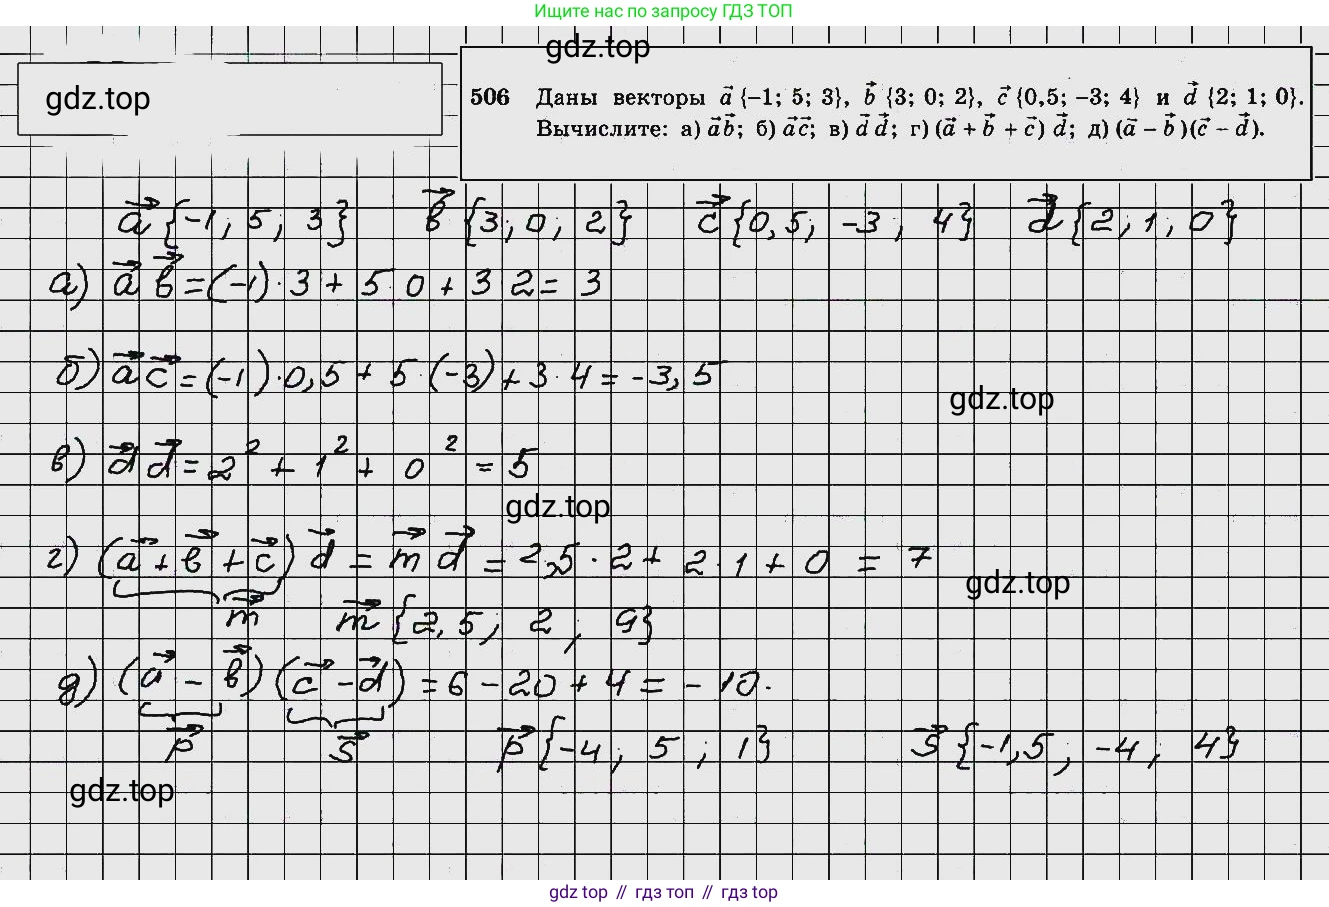 Ищите нас по запросу ГДЗ ТОП
gdz.top
gdz.top
506 Даны векторы a⃗ {−1; 5; 3}, b⃗ {3; 0; 2}, c⃗ {0,5; −3; 4} и d⃗ {2; 1; 0}.
Вычислите: а) a⃗b⃗; б) a⃗c⃗; в) d⃗d⃗; г) (a⃗ + b⃗ + c⃗) d⃗; д) (a⃗ − b⃗)(c⃗ − d⃗).
a⃗ {-1; 5; 3} b⃗ {3; 0; 2} c⃗ {0,5; -3; 4} d⃗ {2; 1; 0}
а) a⃗ b⃗ = (-1)·3 + 5 0 + 3 2 = 3
б) a⃗ c⃗ = (-1)·0,5 + 5·(-3) + 3·4 = -3,5
gdz.top
в) d⃗ d⃗ = 2² + 1² + 0² = 5
gdz.top
г) (a⃗ + b⃗ + c⃗) d⃗ = m⃗ d⃗ = 2,5·2 + 2·1 + 0 = 7
gdz.top
m⃗ m⃗ {2,5; 2; 9}
д) (a⃗ - b⃗) (c⃗ - d⃗) = 6 - 20 + 4 = -10.
p⃗ s⃗ p⃗ {-4; 5; 1} s⃗ {-1,5; -4; 4}
gdz.top
gdz top // гдз топ // gdz top